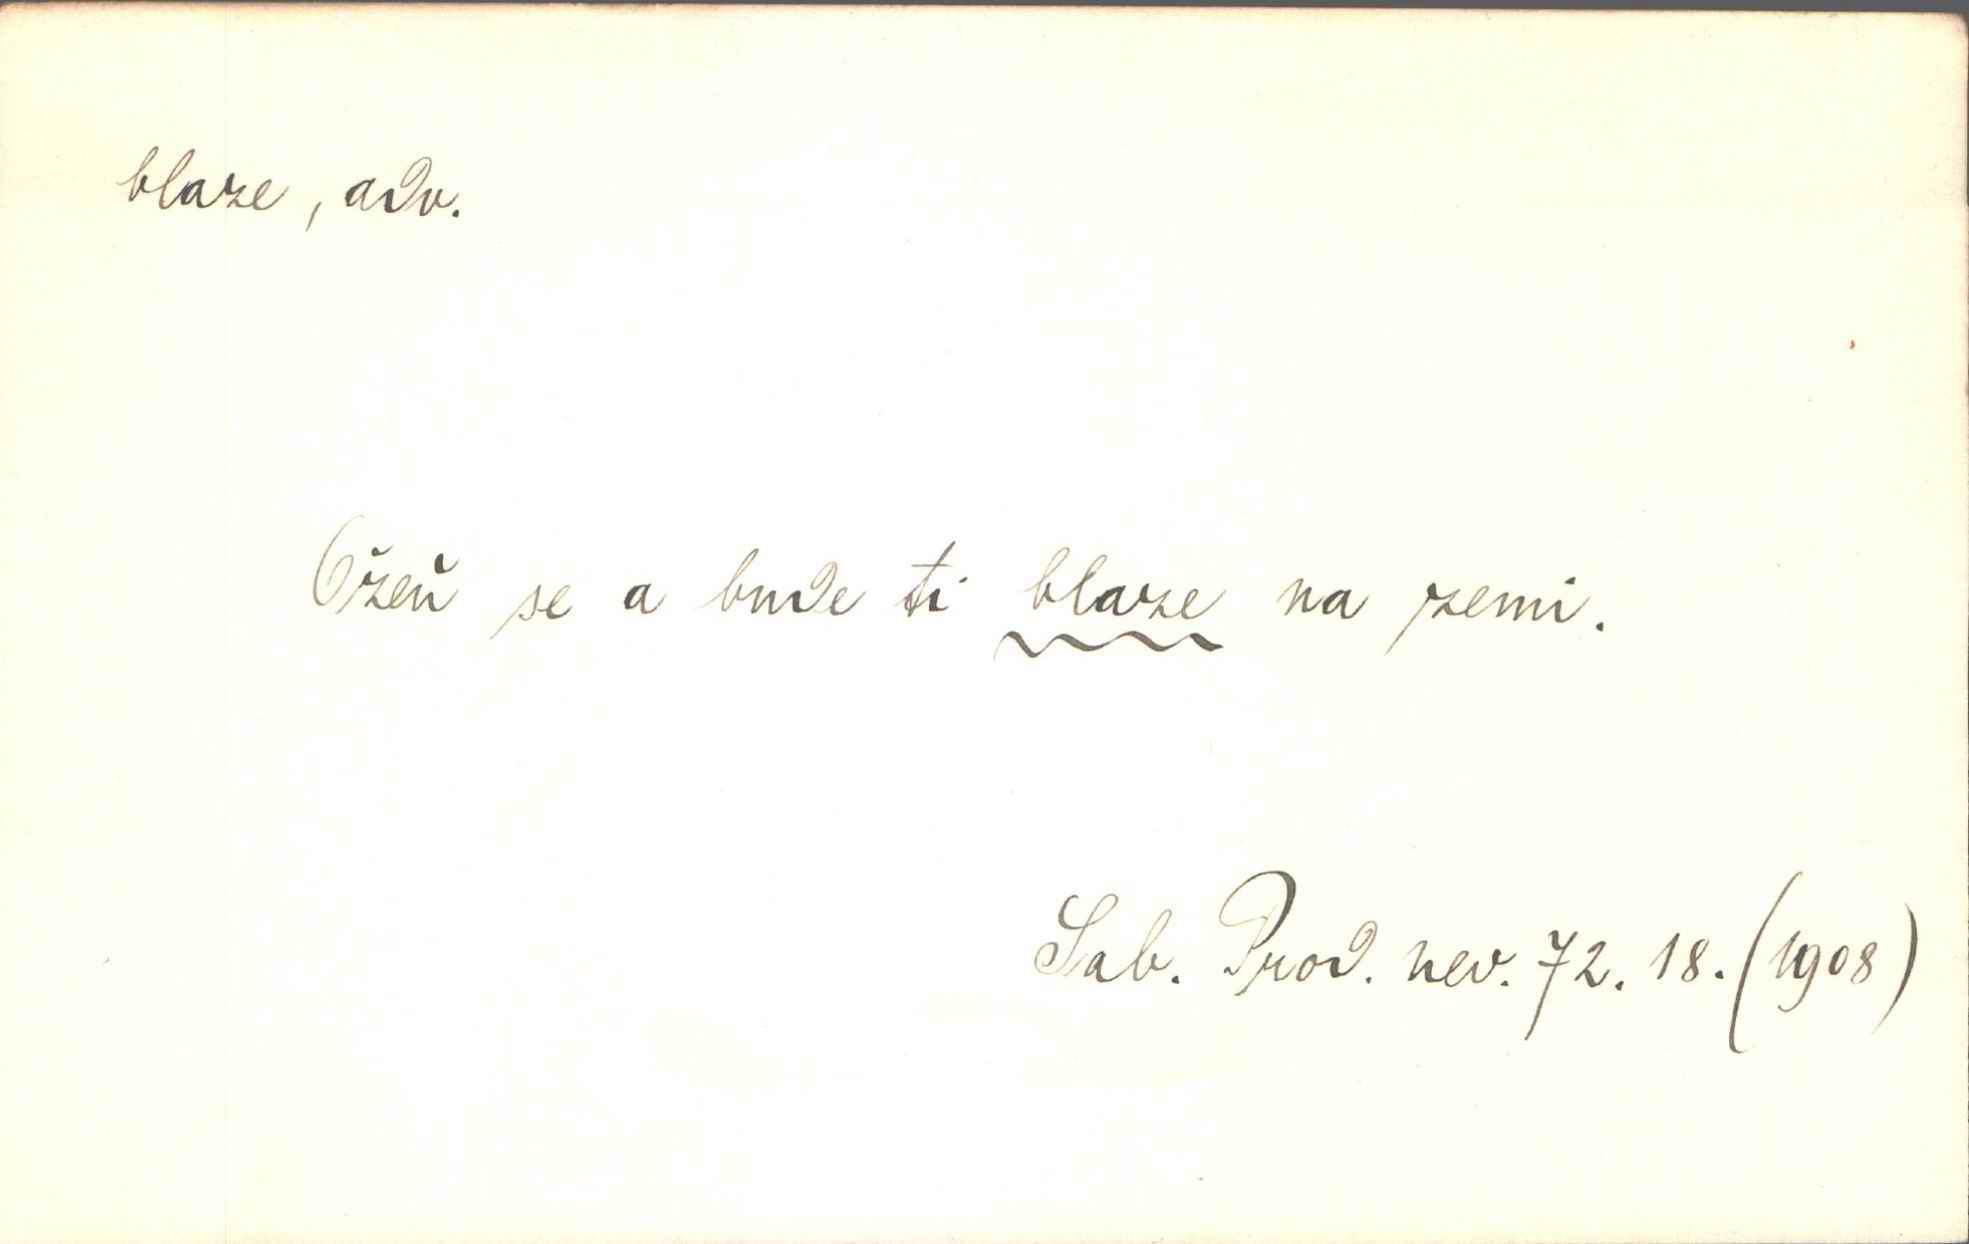 blaze, adv.
Ožeň se a bude ti blaze na zemi.
Sab. Prod. nev. 72. 18. (1908)